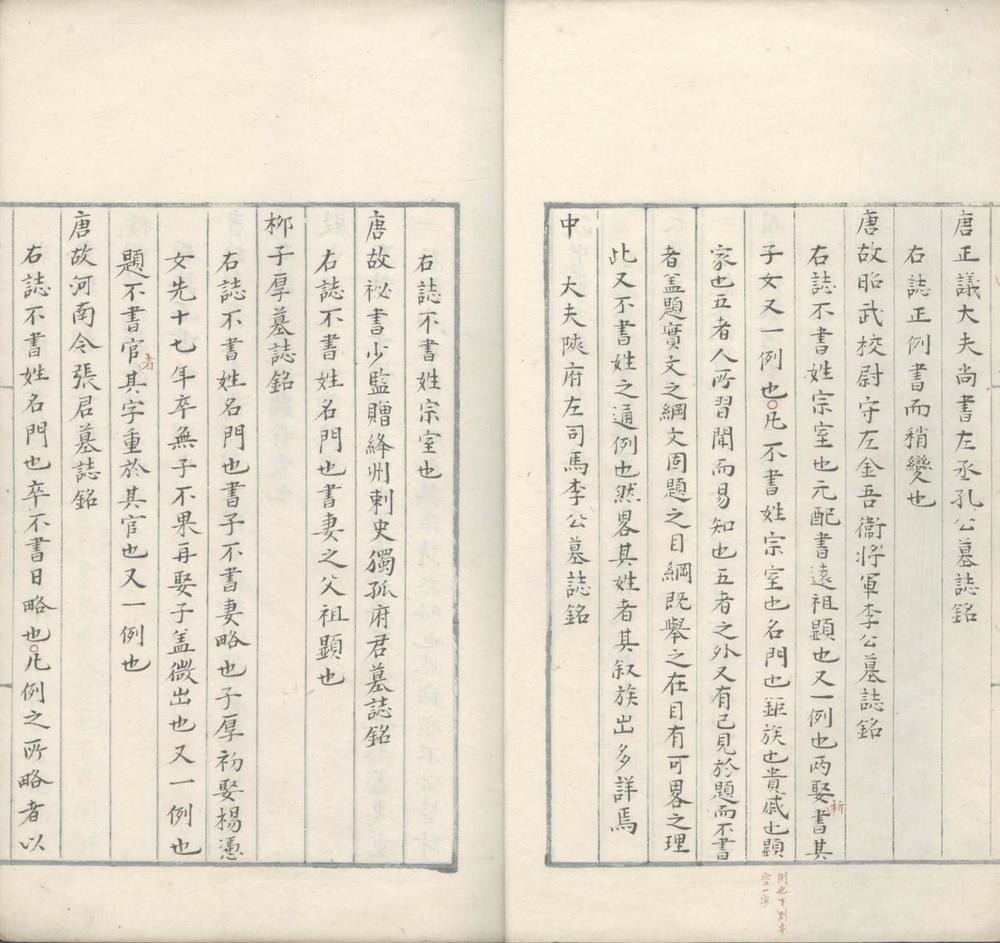 唐正議大夫尚書左丞孔公墓誌銘
右誌正例書而稍變也
唐故昭武校尉守左金吾衛將軍李公墓誌銘
右誌不書姓宗室也元配書遠祖顯也又一例也兩娶書其
析
子女又一例也凡不書姓宗室也名門也鉅族也貴戚也顯
例也下別本
空一字
家也五者人所習聞而易知也五者之外又有已見於題而不書
者盖題實文之綱文固題之目綱既舉之在目有可畧之理
此又不書姓之通例也然畧其姓者其叙族出多詳焉
中 大夫陝府左司馬李公墓誌銘
右誌不書姓宗室也
唐故祕書少監贈絳州刺史獨孤府君墓誌銘
右誌不書姓名門也書妻之父祖顯也
栁子厚墓誌銘
右誌不書姓名門也書子不書妻略也子厚初娶楊憑
女先十七年卒無子不果再娶子盖微出也又一例也
題不書官其字重於其官也又一例也
者
唐故河南令張君墓誌銘
右誌不書姓名門也卒不書日略也凡例之所略者以